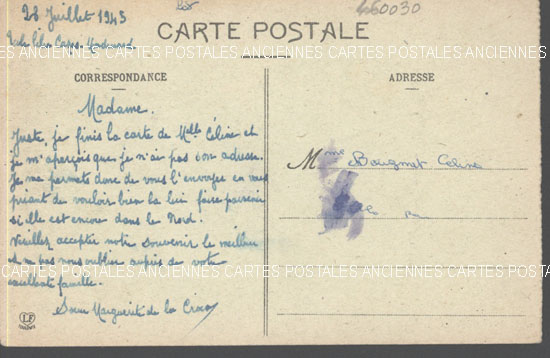 28 Juillet 1943
460030
CARTE POSTALE
CARTES POSTALES ANCIENNES CARTES POSTALES ANCIENNES CARTES POSTALES ANCIENNES
CORRESPONDANCE
ADRESSE
Madame.
Juste, je finis la carte de Melle Céline et
je m'aperçois que je n'ai pas son adresse.
Je me permets donc de vous l'envoyer en vous
priant de vouloir bien la lui faire parvenir
si elle est encore dans le Nord.
Veuillez accepter notre souvenir le meilleur
et ne pas nous oublier auprès de votre
excellente famille.
Soeur Marguerite de la Croix
Mme Céline
CARTES POSTALES ANCIENNES CARTES POSTALES ANCIENNES CARTES POSTALES ANCIENNES
LF